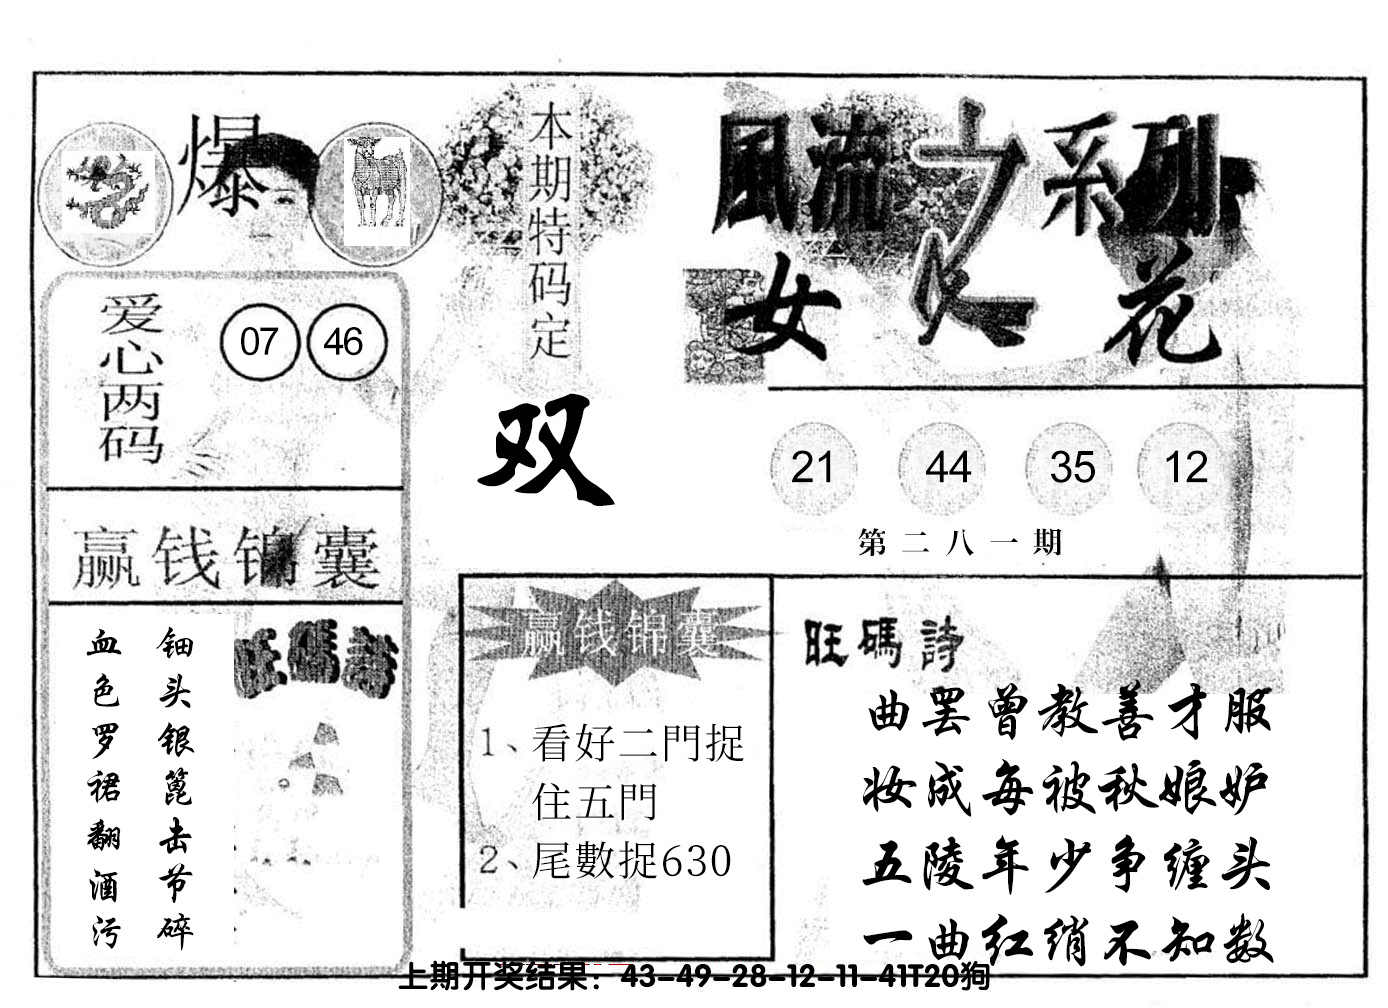 爆
本期特码定
双
風流之系列
女人花
爱心两码
07 46
21 44 35 12
第二八一期
赢钱锦囊
钿头银篦击节碎
血色罗裙翻酒污
旺碼詩
赢钱锦囊
1、看好二門捉
住五門
2、尾數捉630
旺碼詩
曲罢曾教善才服
妆成每被秋娘妒
五陵年少争缠头
一曲红绡不知数
上期开奖结果：43-49-28-12-11-41T20狗